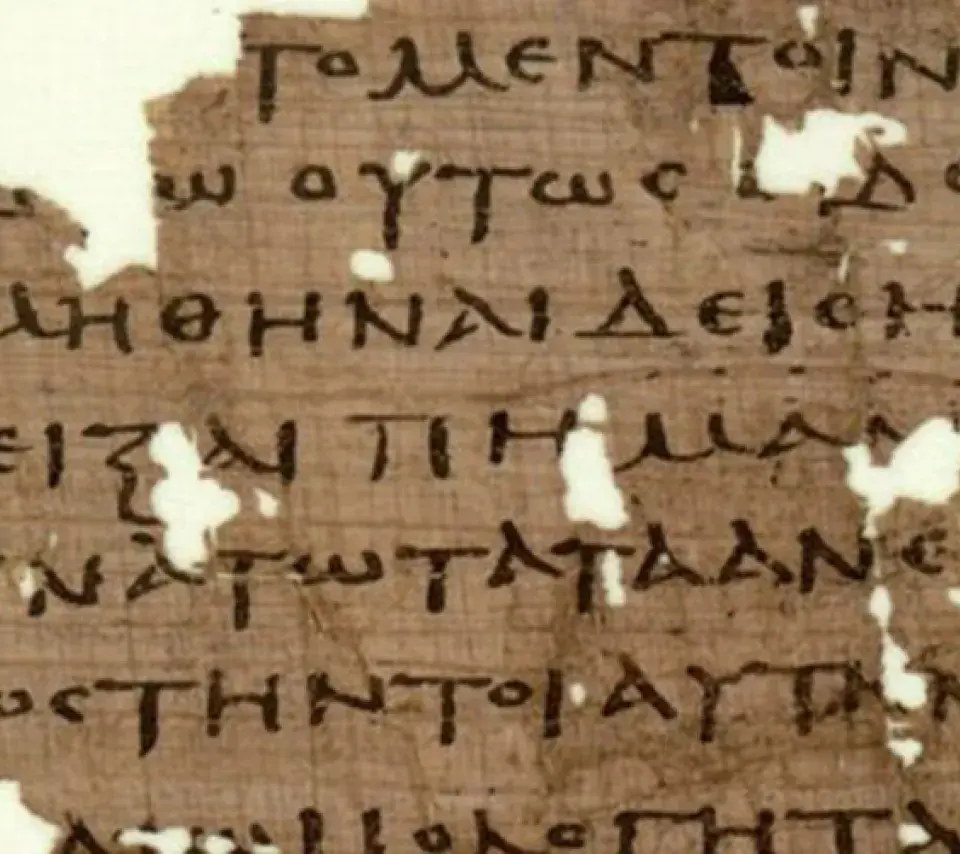 ΤΟΜΕΝΤΟΙΝ
Ω ΟΥΤΩΣ ΔΟ
ΜΗΘΗΝΑΙ ΔΕΙϹ
ΕΙΞΑΙ ΠΗΜΑΝ
ΝΑΤΩΤΑΤΑΑΝΕ
ΟϹΤΗΝΤΟΙΑΥΤΗΝ
ΓΗΤΑ